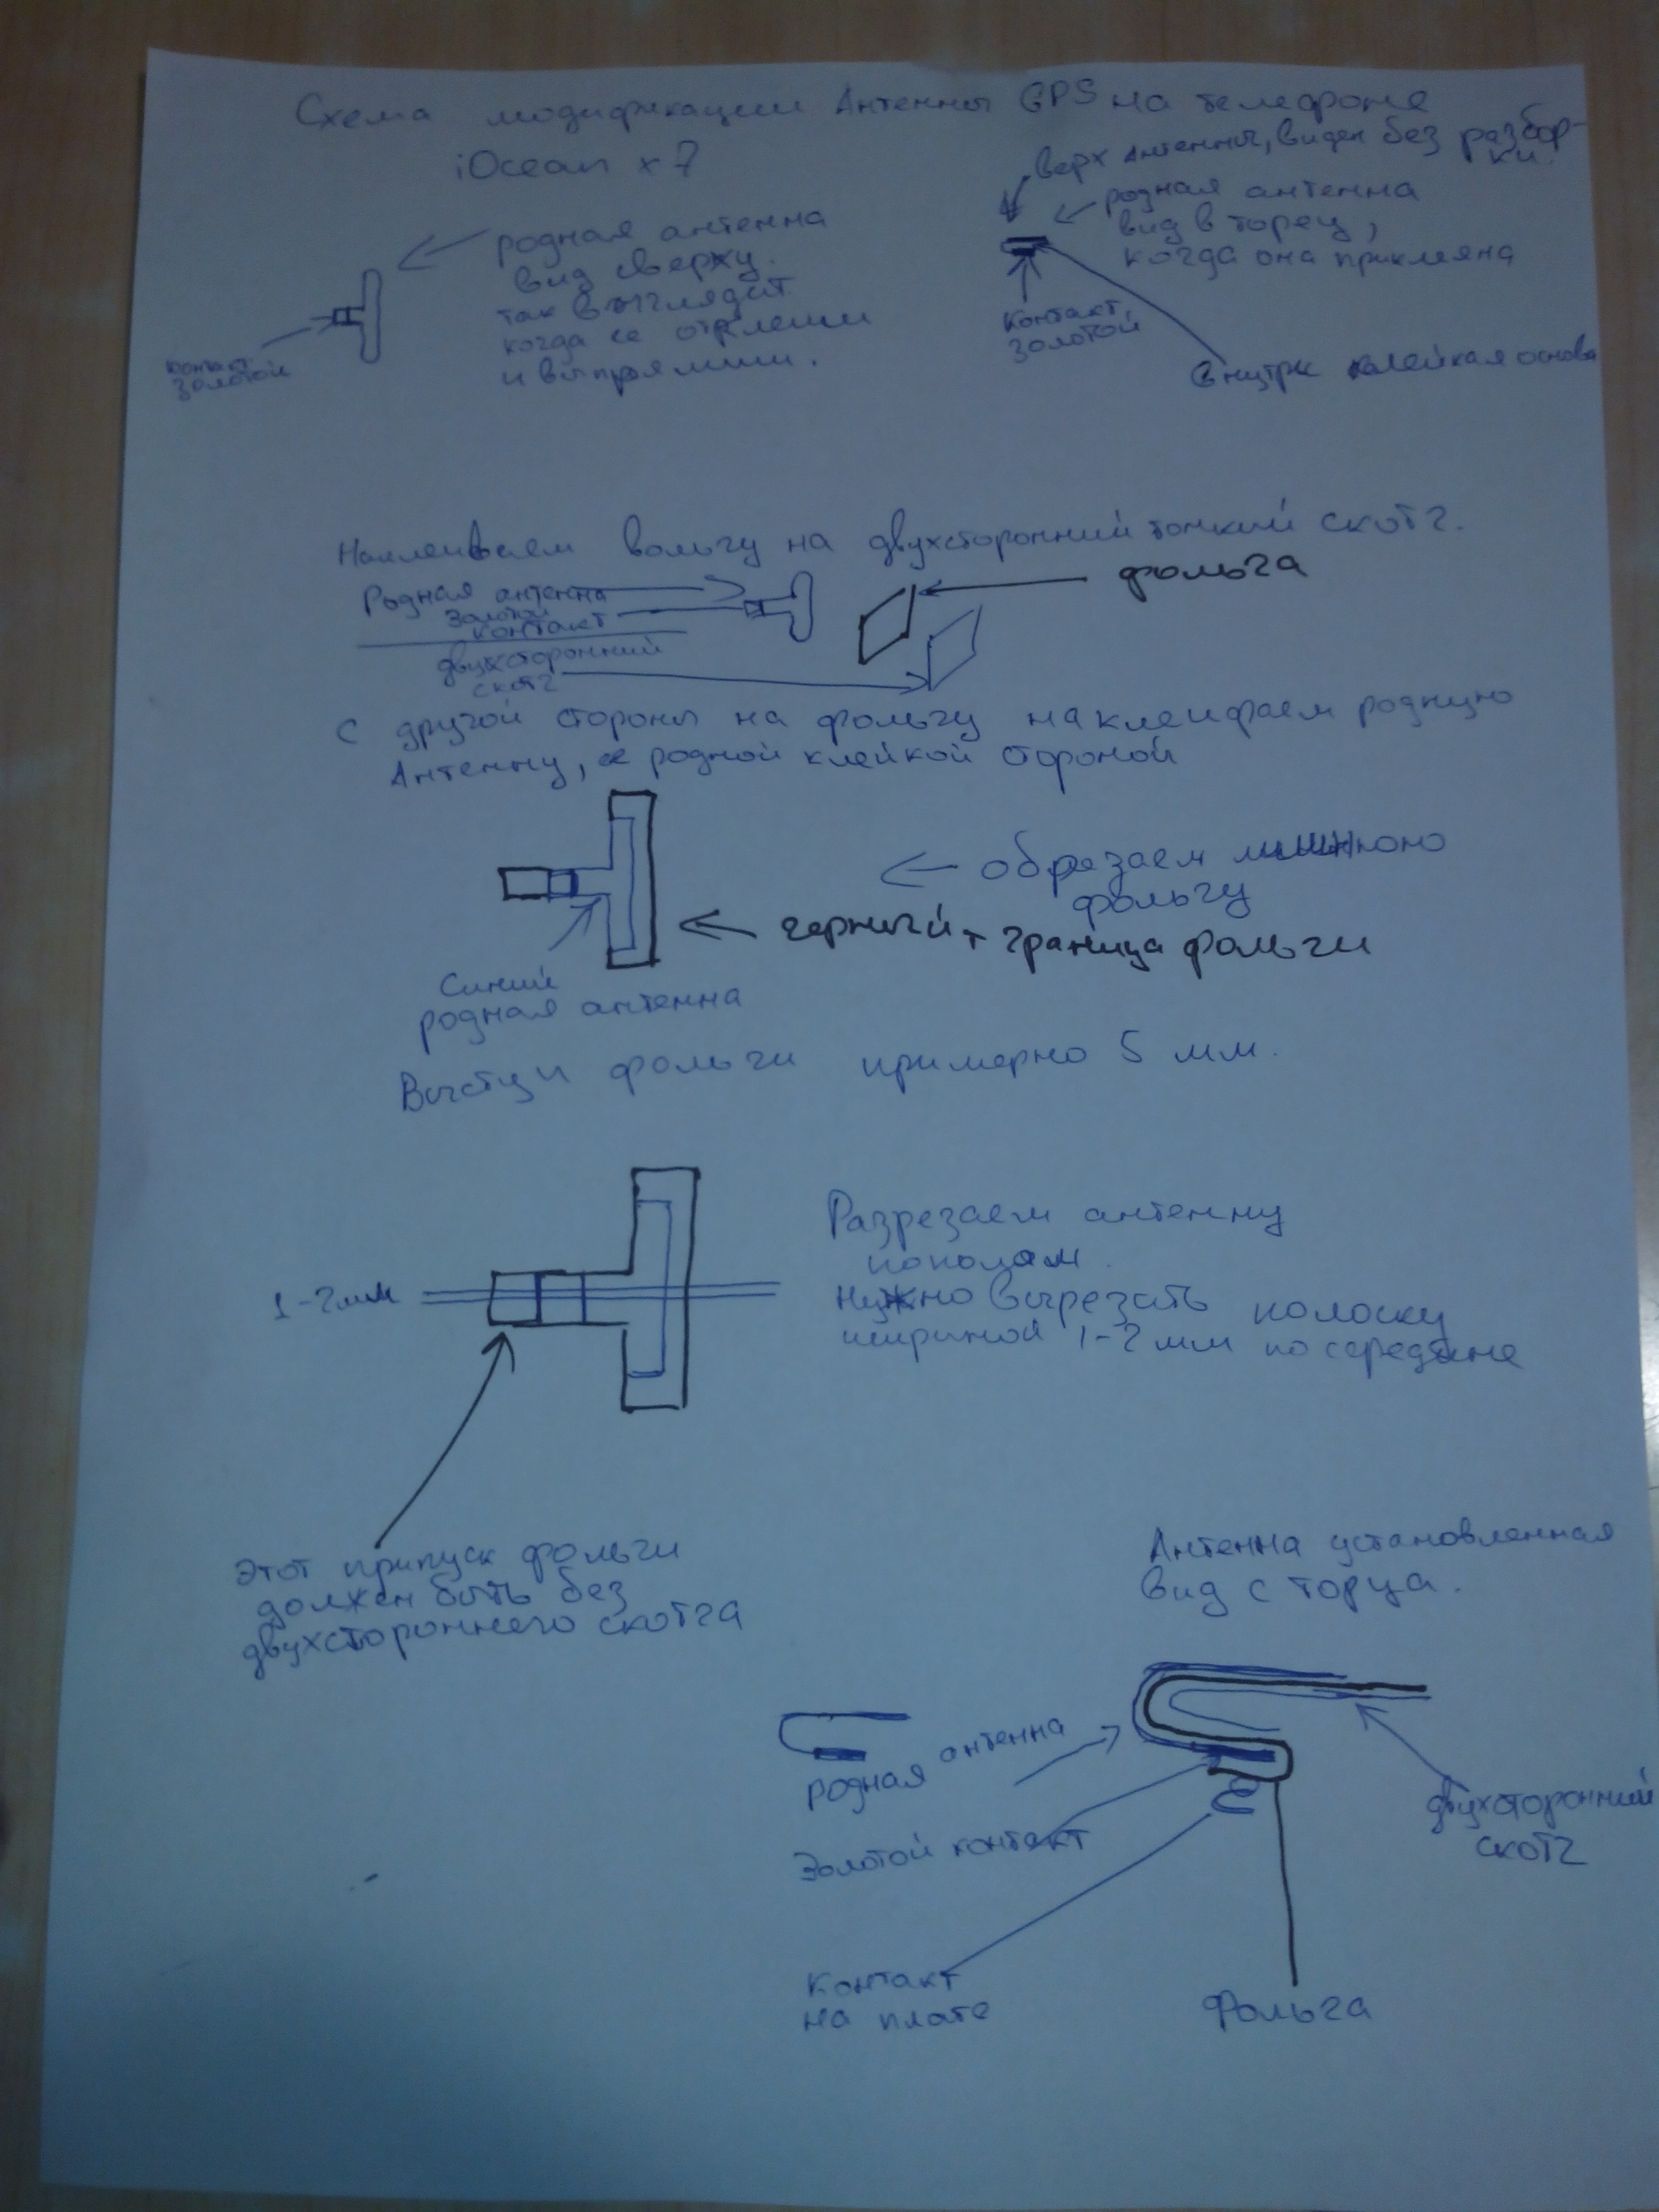 Схема модификации Антенны GPS на телефоне
iOcean x7
родная антенна
вид сверху.
так выглядит
когда ее отклеили
и выпрямили.
контакт
золотой
верх антенны, виден без разбор-
ки.
родная антенна
вид в торец,
когда она приклеяна
контакт
золотой
Внутри клейкая основа
Наклеиваем вольгу на двухсторонний тонкий скотч.
Родная антенна
золотой
контакт
двухсторонний
скотч
фольга
С другой стороны на фольгу наклеифаем родную
Антенну, ее родной клейкой стороной
обрезаем лишнюю
фольгу
черный + граница фольги
Синий
родная антенна
Выступ фольги примерно 5 мм.
1-2мм
Разрезаем антенну
пополам.
Нужно вырезать полоску
шириной 1-2 мм по середине
Этот припуск фольги
должен быть без
двухстороннего скотча
Антенна установленная
вид с торца.
родная антенна
Золотой контакт
двухсторонний
скотч
Контакт
на плате
Фольга